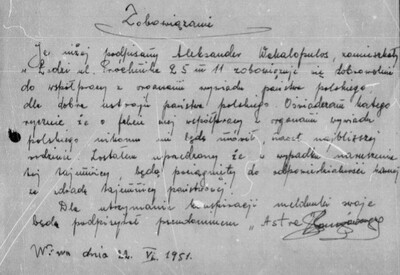 Zobowiązanie
Ja niżej podpisany Aleksander Wakalopulos, zamieszkały
w Łodzi ul. Próchnika 25 m 11 zobowiązuję się dobrowolnie
do współpracy z organami wywiadu państwa polskiego
dla dobra ustroju państwa polskiego. Oświadczam katego
rycznie że o fakcie mej współpracy z organami wywiadu
polskiego nikomu nie będę mówił nawet najbliższej
rodzinie. Zostałem uprzedzony że w wypadku naruszenia
tej tajemnicy będę pociągnięty do odpowiedzialności karnej
za zdradę tajemnicy państwowej.
Dla utrzymania konspiracji meldunki swoje
będę podpisywał pseudonimem "Astra"
W-wa dnia 22. VI. 1951.